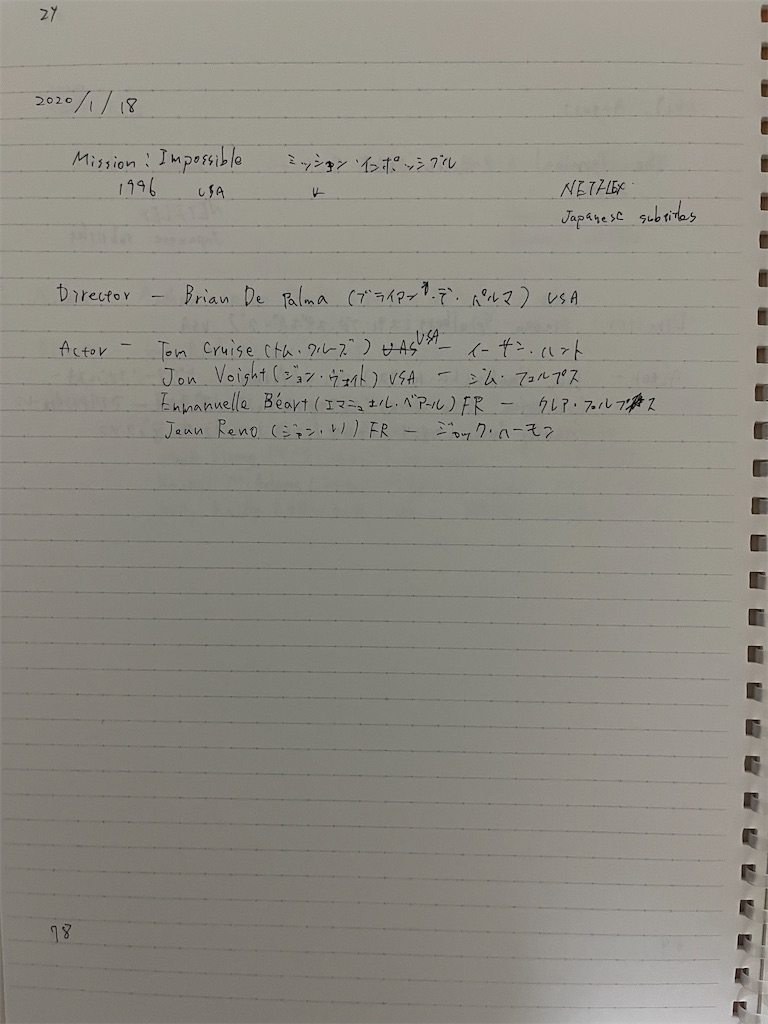 24
2020/1/18
Mission: Impossible ミッション・インポッシブル
1996 USA
NETFLEX
Japanese subtitles
Director - Brian De Palma (ブライアン・デ・パルマ) USA
Actor - Tom Cruise (トム・クルーズ) UAS USA - イーサン・ハント
Jon Voight (ジョン・ヴォイト) USA - ジム・フェルプス
Emmanuelle Béart (エマニュエル・ベアール) FR - クレア・フェルプス
Jean Reno (ジャン・レノ) FR -
78